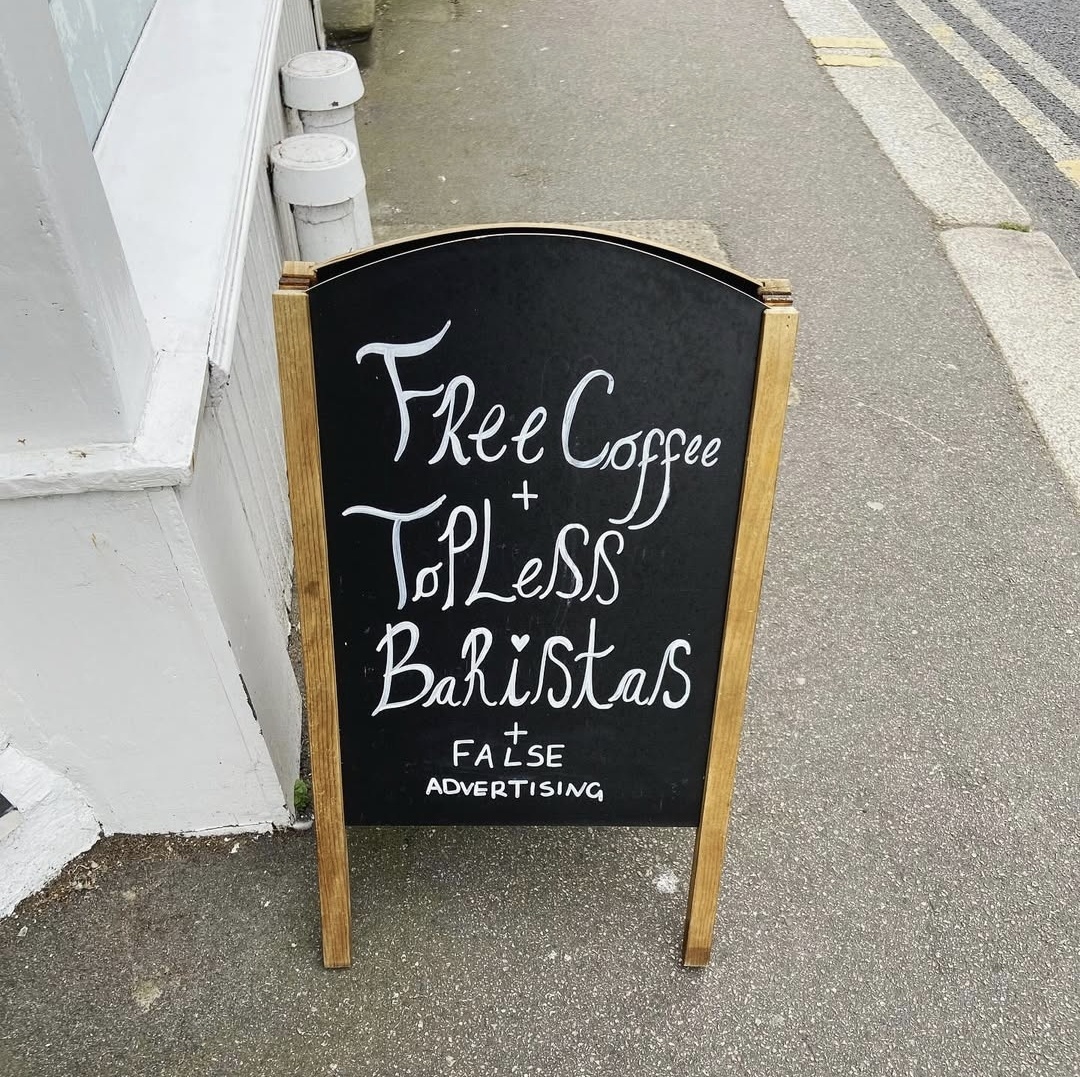 FRee Coffee
+
ToPLess
BaRistas
+
FALSE
ADVERTISING